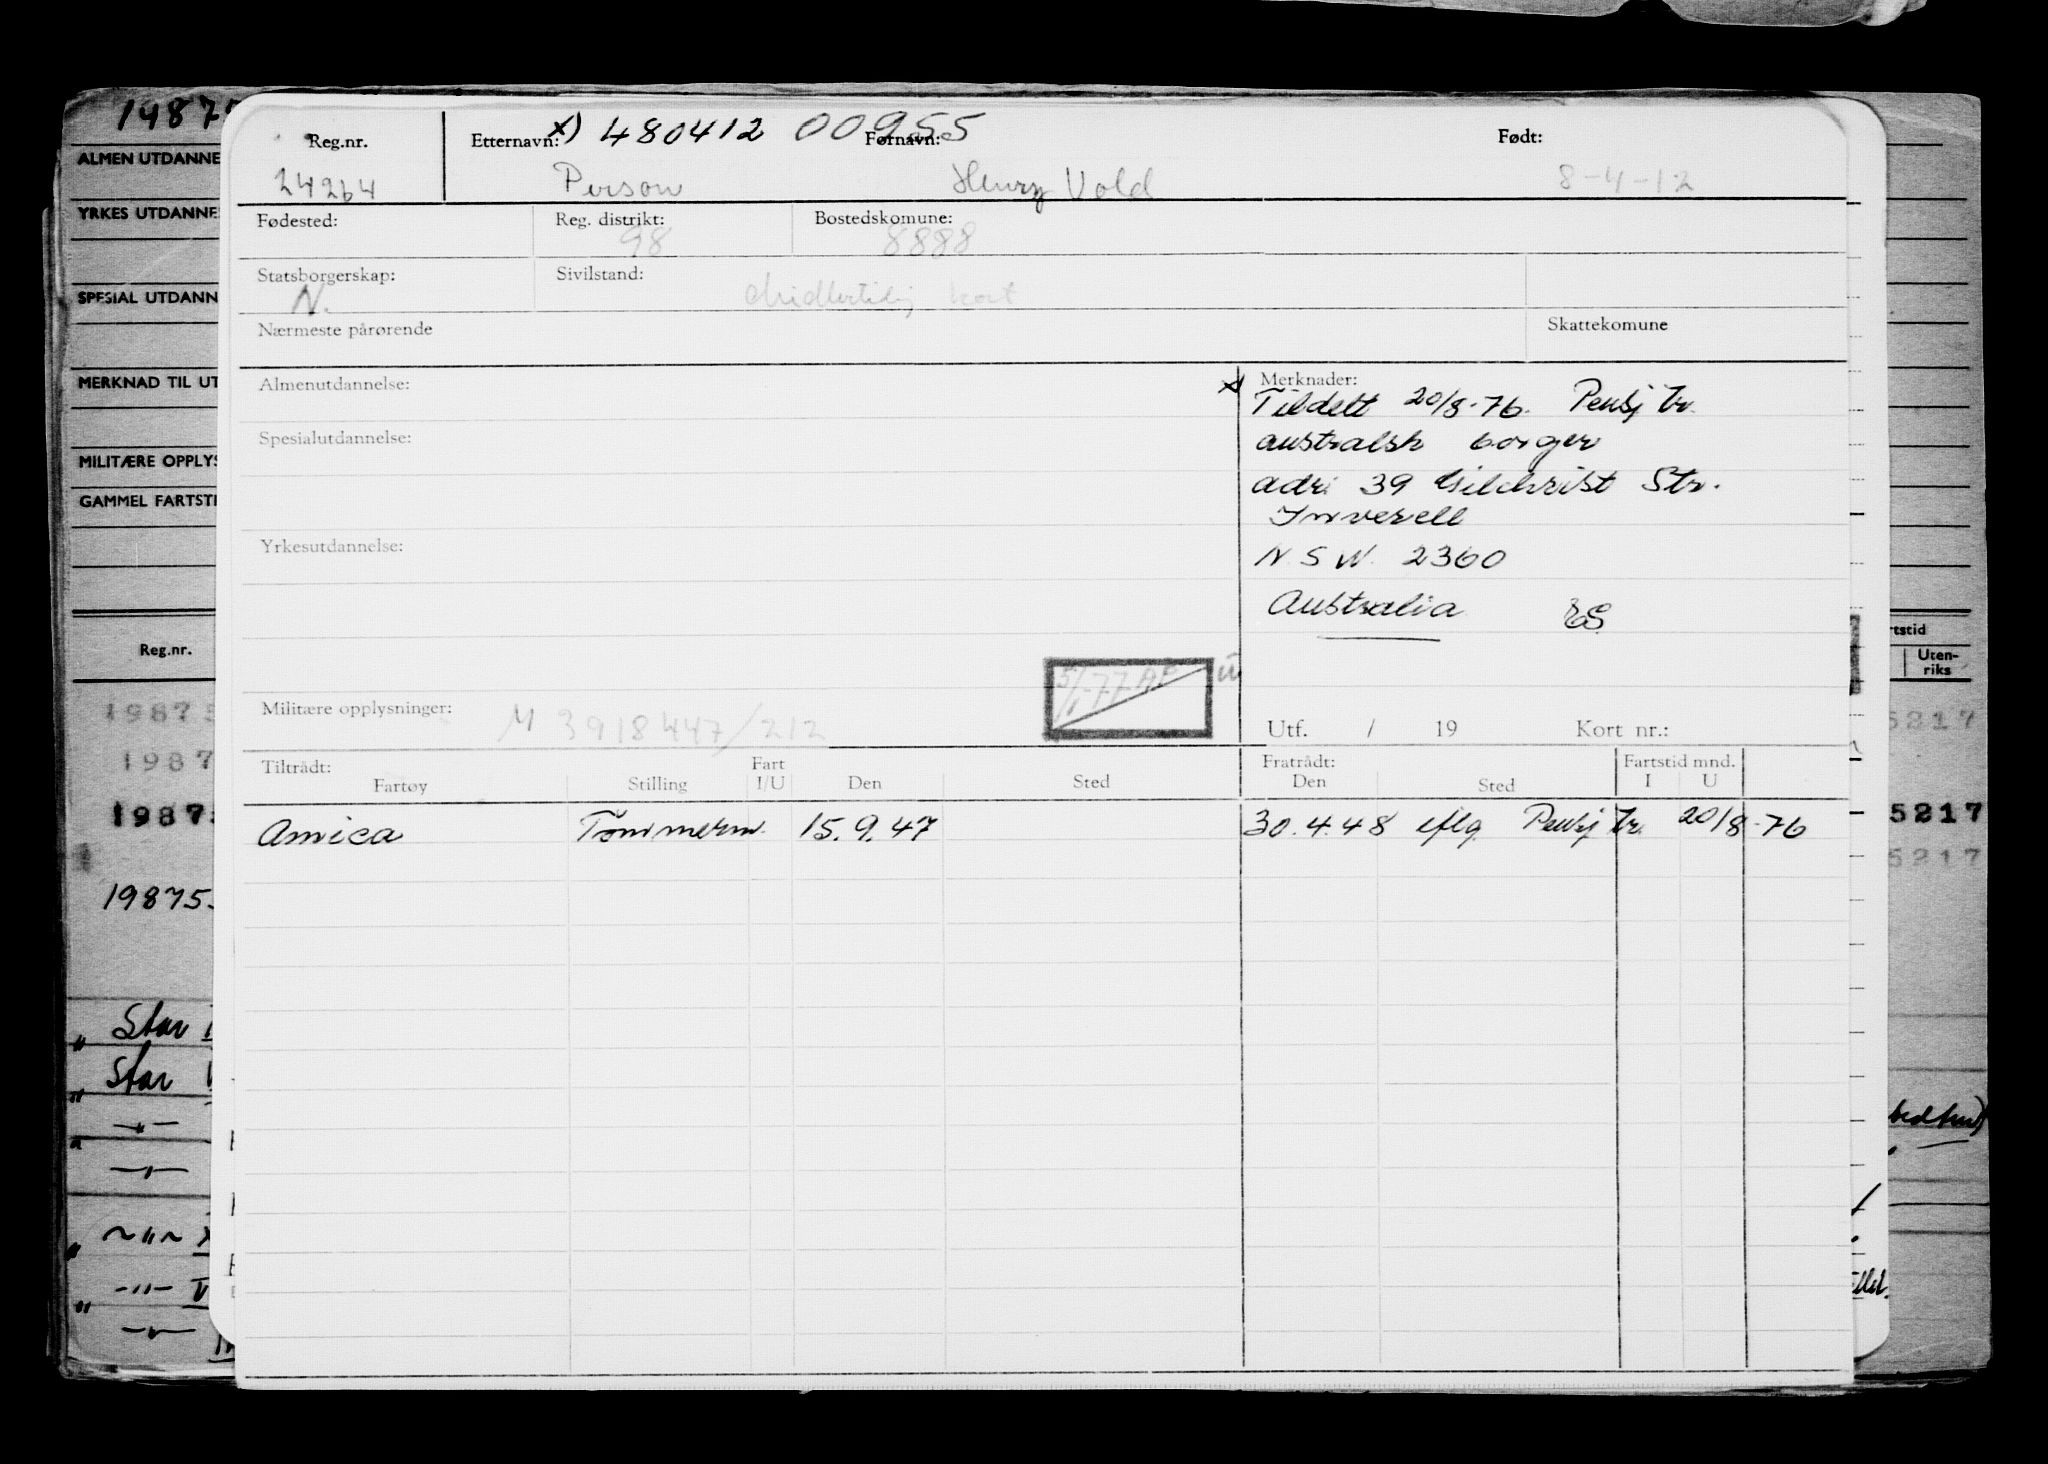 1487
ALMEN UTDANNE
YRKES UTDANNE
SPESIAL UTDANN
MERKNAD TIL UT
MILITÆRE OPPLYS
GAMMEL FARTSTI
Reg.nr.
19875
1987
1987
19875
Star
Star
Reg.nr. Etternavn: x) 480412 00955 Fornavn: Født:
24264 Person Henry Vold 8-4-12
Fødested: Reg. distrikt: Bostedskomune:
98 8888
Statsborgerskap: Sivilstand:
N. Midlertidig kort
Nærmeste pårørende Skattekomune
Almenutdannelse: x Merknader:
Tildelt 20/8-76. Pensj tr.
Spesialutdannelse: australsk borger
adr: 39 Gilchrist Str.
Inverell
Yrkesutdannelse: N.S.W. 2360
Australia
Militære opplysninger: M 3918447/212
Utf. / 19 Kort nr.:
Tiltrådt: Fart Fratrådt: Fartstid mnd.
Fartøy Stilling I/U Den Sted Den Sted I U
Amica Tømmerm. 15.9.47 30.4.48 eflg. Pensj tr. 20/8-76
rtstid
Uten-
riks
5217
5217
5217